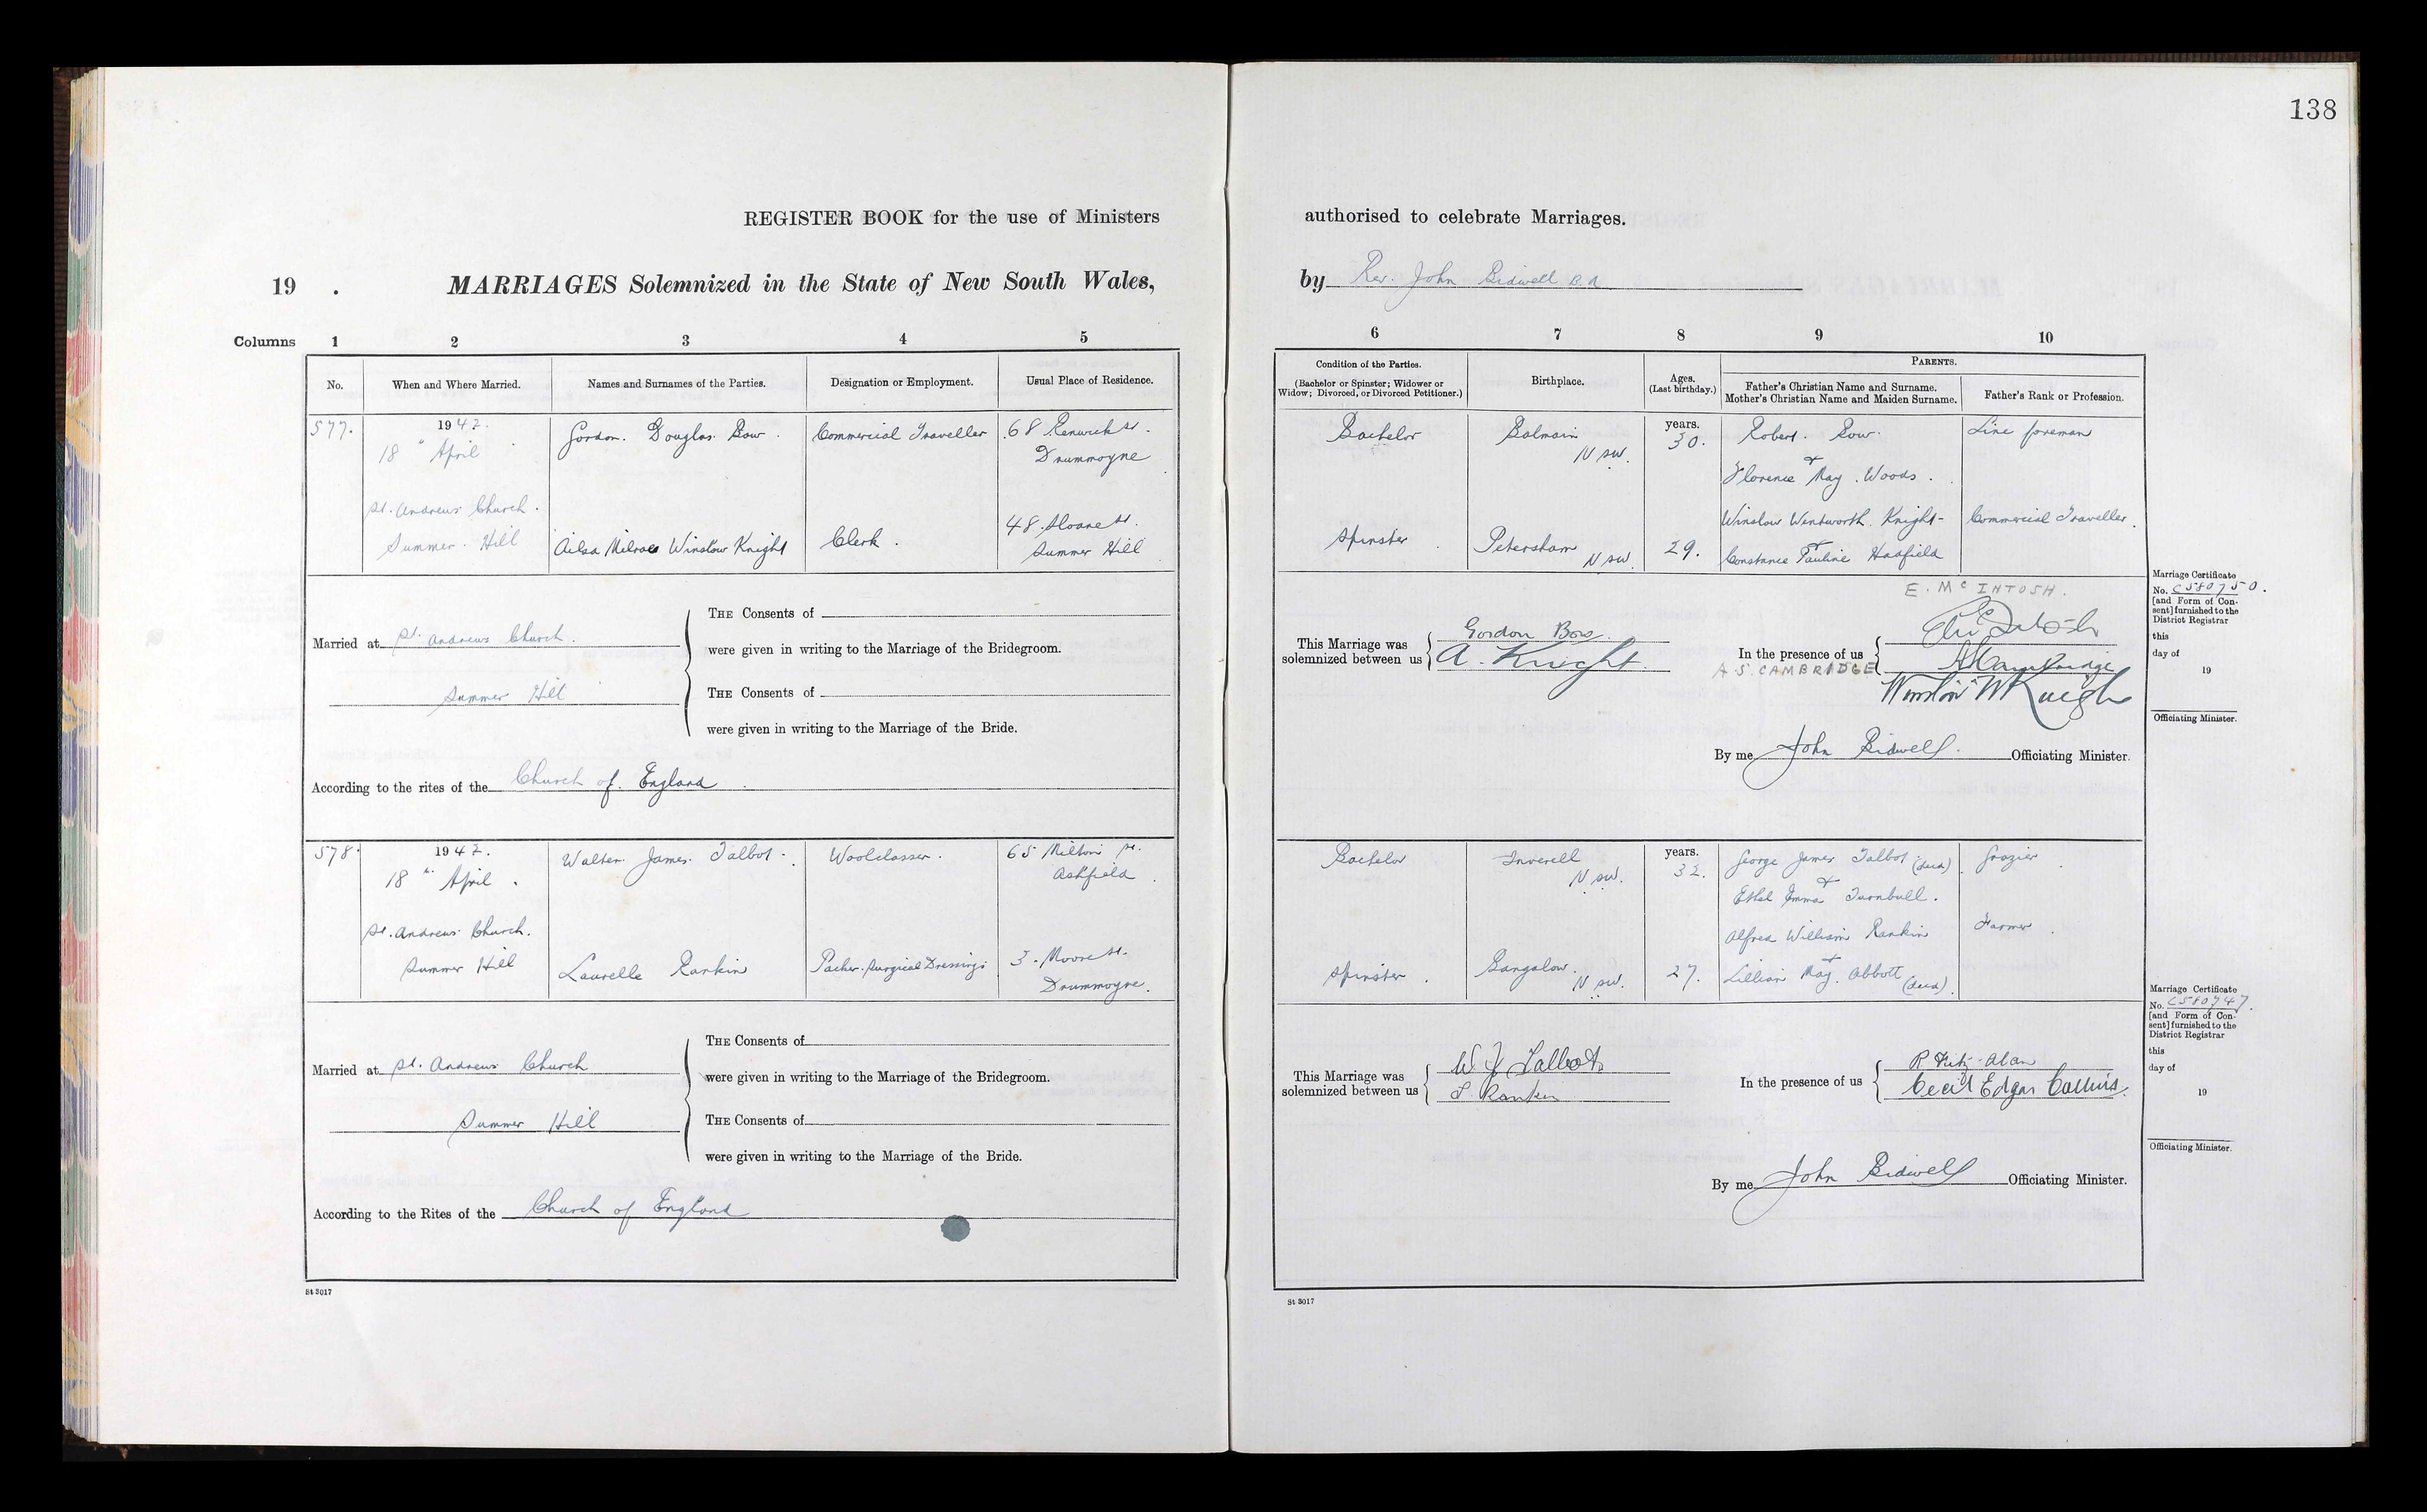 138
REGISTER BOOK for the use of Ministers authorised to celebrate Marriages.
19 . MARRIAGES Solemnized in the State of New South Wales, by Rev. John Bidwell B.A.
Columns 1 2 3 4 5 6 7 8 9 10
No. When and Where Married. Names and Surnames of the Parties. Designation or Employment. Usual Place of Residence.
Condition of the Parties.
(Bachelor or Spinster; Widower or
Widow; Divorced, or Divorced Petitioner.)
Birthplace.
Ages.
(Last birthday.)
PARENTS.
Father's Christian Name and Surname.
Mother's Christian Name and Maiden Surname.
Father's Rank or Profession.
577. 1942.
18 " April
St. Andrews Church.
Summer Hill
Gordon Douglas Bow
Commercial Traveller
68 Renwick St.
Drummoyne
Ailsa Milrae Winslow Knight
Clerk.
48 Sloane St.
Summer Hill
Bachelor
Balmain
NSW.
years.
30.
Robert Bow
&
Florence May Woods.
Line foreman
Spinster
Petersham
NSW.
29.
Winslow Wentworth Knight-
&
Constance Pauline Hadfield
Commercial Traveller.
Married at St. Andrews Church.
Summer Hill
THE Consents of
were given in writing to the Marriage of the Bridegroom.
THE Consents of
were given in writing to the Marriage of the Bride.
According to the rites of the Church of England
This Marriage was
solemnized between us
Gordon Bow
A. Knight.
In the presence of us
E. Mc INTOSH.
A.S. CAMBRIDGE
Winslow W Knight
By me John Bidwell. Officiating Minister.
Marriage Certificate
No. C580750.
[and Form of Con-
sent] furnished to the
District Registrar
this
day of
19
Officiating Minister.
578. 1942.
18 th April.
St. Andrews Church.
Summer Hill
Walter James Talbot
Woolclasser.
65 Milton St.
Ashfield.
Laurelle Rankin
Packer Surgical Dressings
3 Moore St.
Drummoyne.
Bachelor
Inverell
NSW.
years.
32.
George James Talbot (decd)
&
Ethel Emma Turnbull.
Grazier
Spinster.
Bangalow.
NSW.
27.
Alfred William Rankin
&
Lillian May Abbott (decd).
Farmer
Married at St. Andrews Church
Summer Hill
THE Consents of
were given in writing to the Marriage of the Bridegroom.
THE Consents of
were given in writing to the Marriage of the Bride.
According to the Rites of the Church of England
This Marriage was
solemnized between us
W. J Talbot
L. Rankin
In the presence of us
R Fitz-Alan
Cecil Edgar Collins.
By me John Bidwell Officiating Minister.
Marriage Certificate
No. C580747.
[and Form of Con-
sent] furnished to the
District Registrar
this
day of
19
Officiating Minister.
St 3017
St 3017